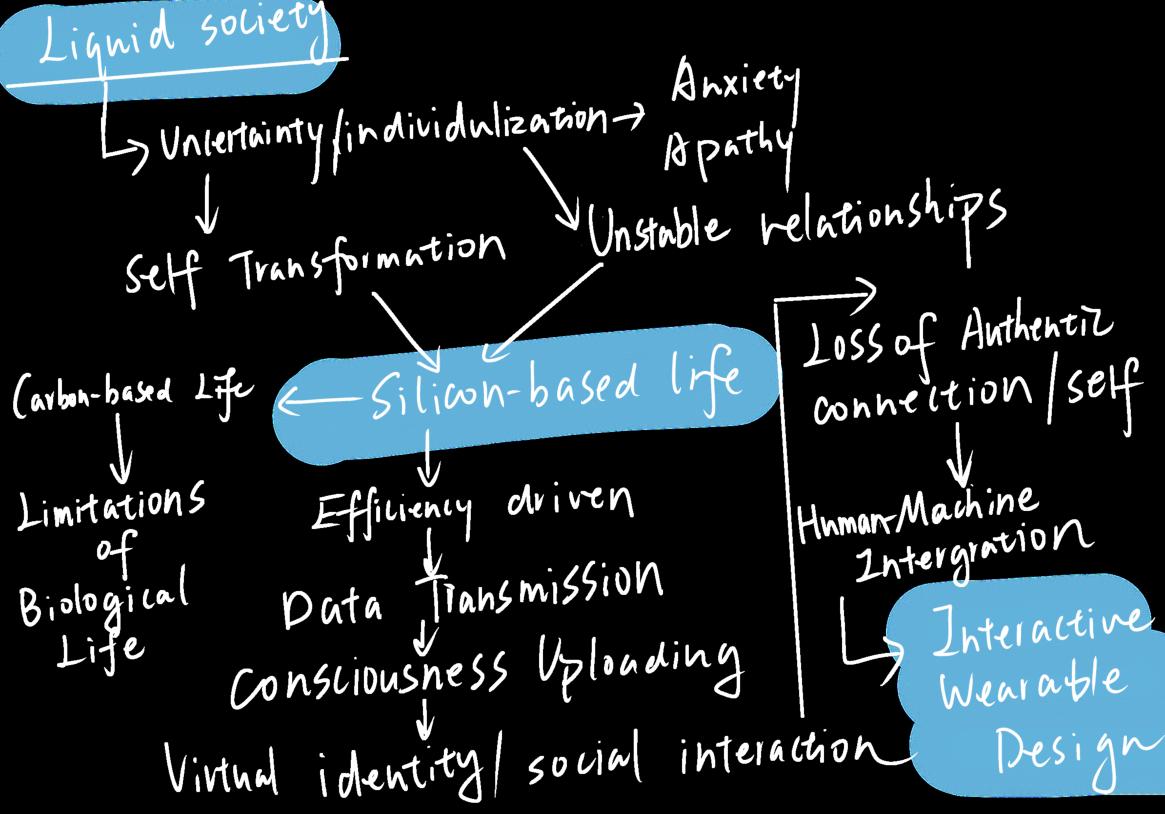 Liquid society
Uncertainty/individulization
Anxiety
Apathy
Self Transformation
Unstable relationships
Carbon-based Life
Silicon-based life
Limitations
of
Biological
Life
Efficiency driven
Data Transmission
Consciousness Uploading
Virtual identity/ social interaction
Loss of Authentic
connection/self
Human-Machine
Intergration
Interactive
Wearable
Design